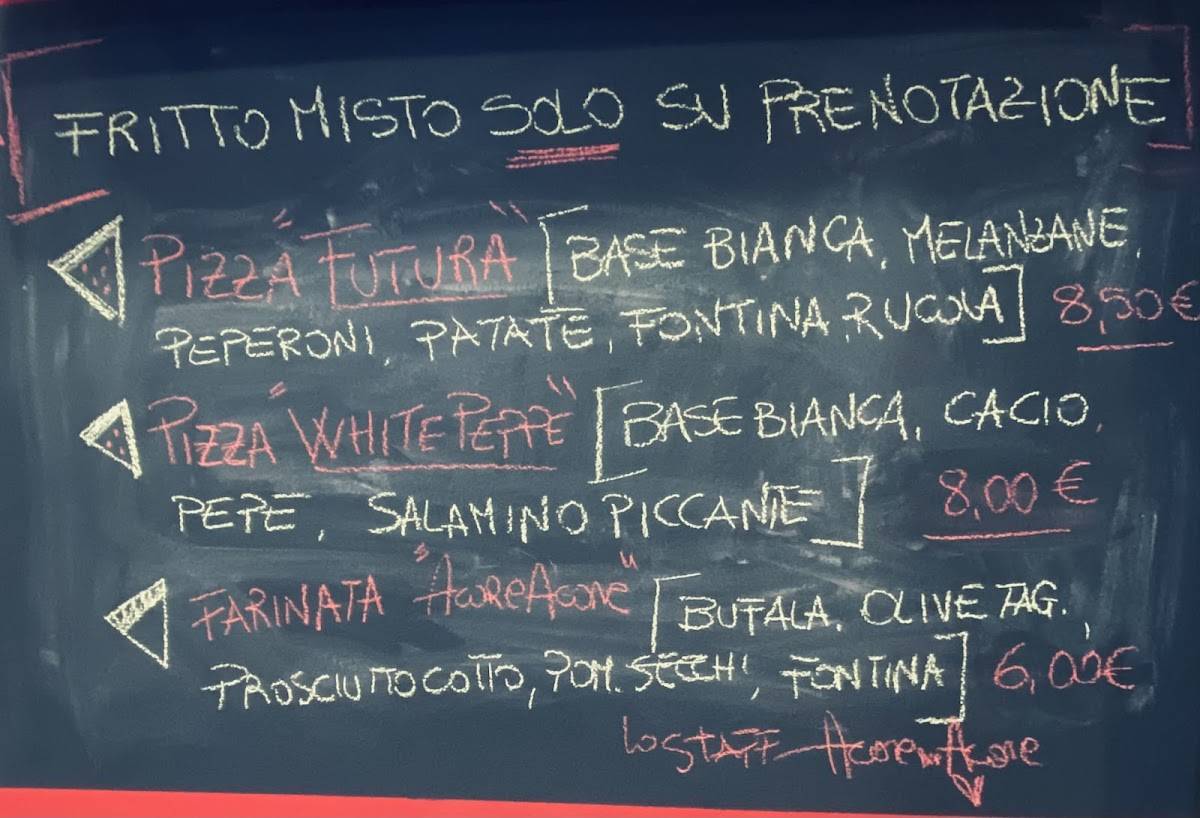 FRITTO MISTO SOLO SU PRENOTAZIONE
PIZZA "FUTURA" [BASE BIANCA, MELANZANE,
PEPERONI, PATATE, FONTINA, RUCOLA] 8,50€
PIZZA "WHITE PEPPE" [BASE BIANCA, CACIO,
PEPE, SALAMINO PICCANTE] 8,00€
FARINATA "AcoreAcore" [BUFALA, OLIVE TAG.,
PROSCIUTTO COTTO, POM. SECCHI, FONTINA] 6,00€
lo STAFF Acore Acore